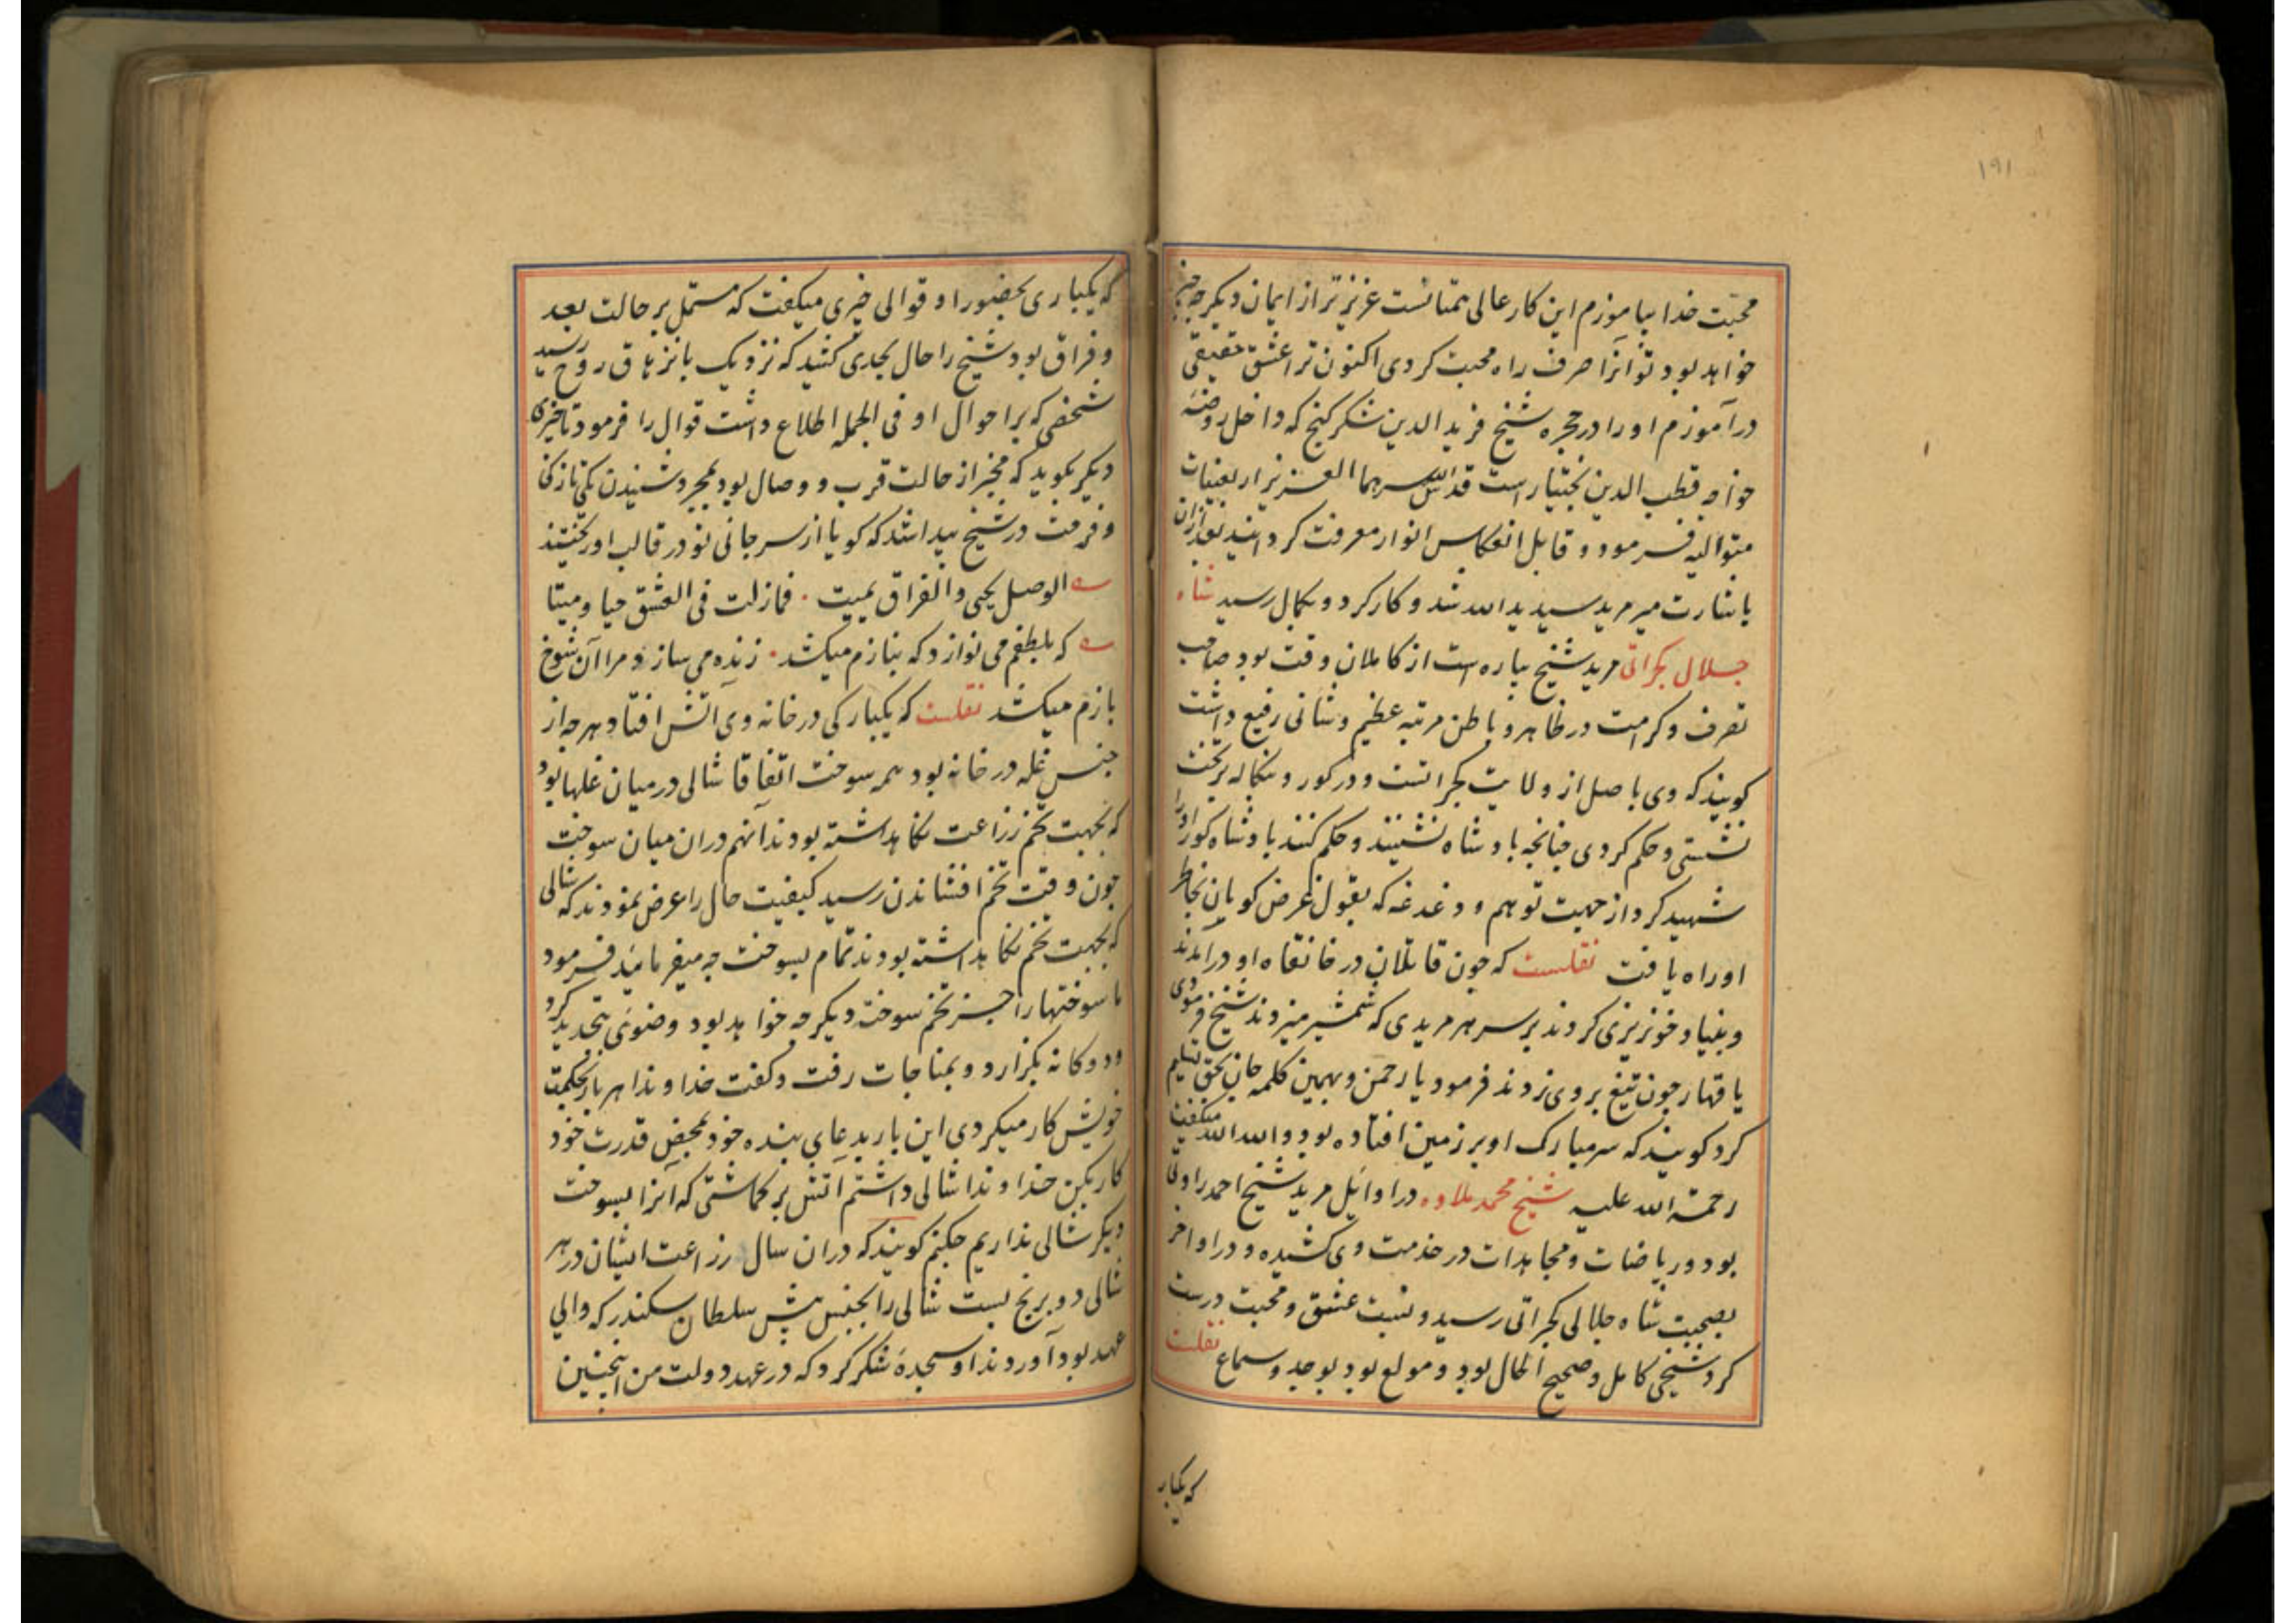 ۱۹۱
محبّت خدا بیاموزم این کار عالی همتانست عزیزتر از ایمان دیگر چه چیز
خواهد بود تو آنرا صرف راه محبت کردی اکنون ترا عشق حقیقی
درآموزم او را در حجره شیخ فرید الدین شکر گنج که داخل روضهٔ
خواجه قطب الدین بختیار است قدس الله سرهما العزیز اربعینات
متوالیه فرمود و قابل انعکاس انوار معرفت گردانید بعد ازان
باشارت میر مرید سید ید الله شد و کار کرد و بکمال رسید شاه
جلال گجراتی مرید شیخ پیاره است از کاملان وقت بود صاحب
تصرف و کرامت در ظاهر و باطن مرتبه عظیم و شانی رفیع داشت
گویند که وی باصل از ولایت گجراتست و در گور و بنگاله بر تخت
نشستی و حکم کردی چنانچه بادشاه نشینند و حکم کنند بادشاه گور او را
شهید کرد از جهت توهم و دغدغه که بقول غرض گویان بخاطر
او راه یافت نقلست که چون قاتلان در خانقاه او درآمدند
و بنیاد خونریزی کردند بر سر هر مریدی که شمشیر میزدند شیخ فرمودی
یا قهار چون تیغ بر وی زدند فرمود یا رحمن و بهمین کلمه جان بحق تسلیم
کرد گویند که سر مبارک او بر زمین افتاده بود و الله الله میگفت
رحمة الله علیه شیخ محمد ملاوه در اوائل مرید شیخ احمد راولی
بود و ریاضات و مجاهدات در خدمت وی کشیده و در اواخر
بصحبت شاه جلال گجراتی رسید و نسبت عشق و محبت درست
کرد شیخی کامل و صحیح الحال بود و مولع بود بوجد و سماع نقلست
که یکبار
که یکباری بحضور او قوالی چیزی میگفت که مشتمل بر حالت بعد
و فراق بود شیخ را حال بجدی کشید که نزدیک بانزهاق روح رسید
شخصی که بر احوال او فی الجمله اطلاع داشت قوال را فرمود تا چیزی
دیگر بگوید که مخبر از حالت قرب و وصال بود بمجرد شنیدن یکی تازگی
و فرحت در شیخ پیدا شد که گویا از سر جانی نو در قالب او ریختند
الوصل یحیی و الفراق یمیت . فمازلت فی العشق حیا و میتا
که بلطفم می نوازد که بنازم میکشد . زنده می سازد مرا آن شوخ
بازم میکشد نقلست که یکبارگی در خانه وی آتش افتاد و هر چه از
جنس غله در خانه بود همه سوخت اتفاقا شالی در میان غلها بود
که بجهت تخم زراعت نگاهداشته بودند آنهم دران میان سوخت
چون وقت تخم افشاندن رسید کیفیت حال را عرض نمودند که شالی
که بجهت تخم نگاهداشته بودند تمام بسوخت چه میفرمائید فرمود
ما سوختها را جز تخم سوخته دیگر چه خواهد بود وضوی تجدید کرد
و دوگانه بگزارد و بمناجات رفت و گفت خداوندا هر بار بحکمت
خویش کار میکردی این بار بدعای بنده خود بمحض قدرت خود
کار بکن خداوندا شالی داشتم آتش بر گماشتی که آنرا بسوخت
دیگر شالی نداریم چکنم گویند که دران سال زراعت ایشان در هر
شالی دو برنج بست شالی را بجنس پیش سلطان سکندر که والی
عهد بود آوردند او سجدهٔ شکر کرد که در عهد دولت من اینچنین